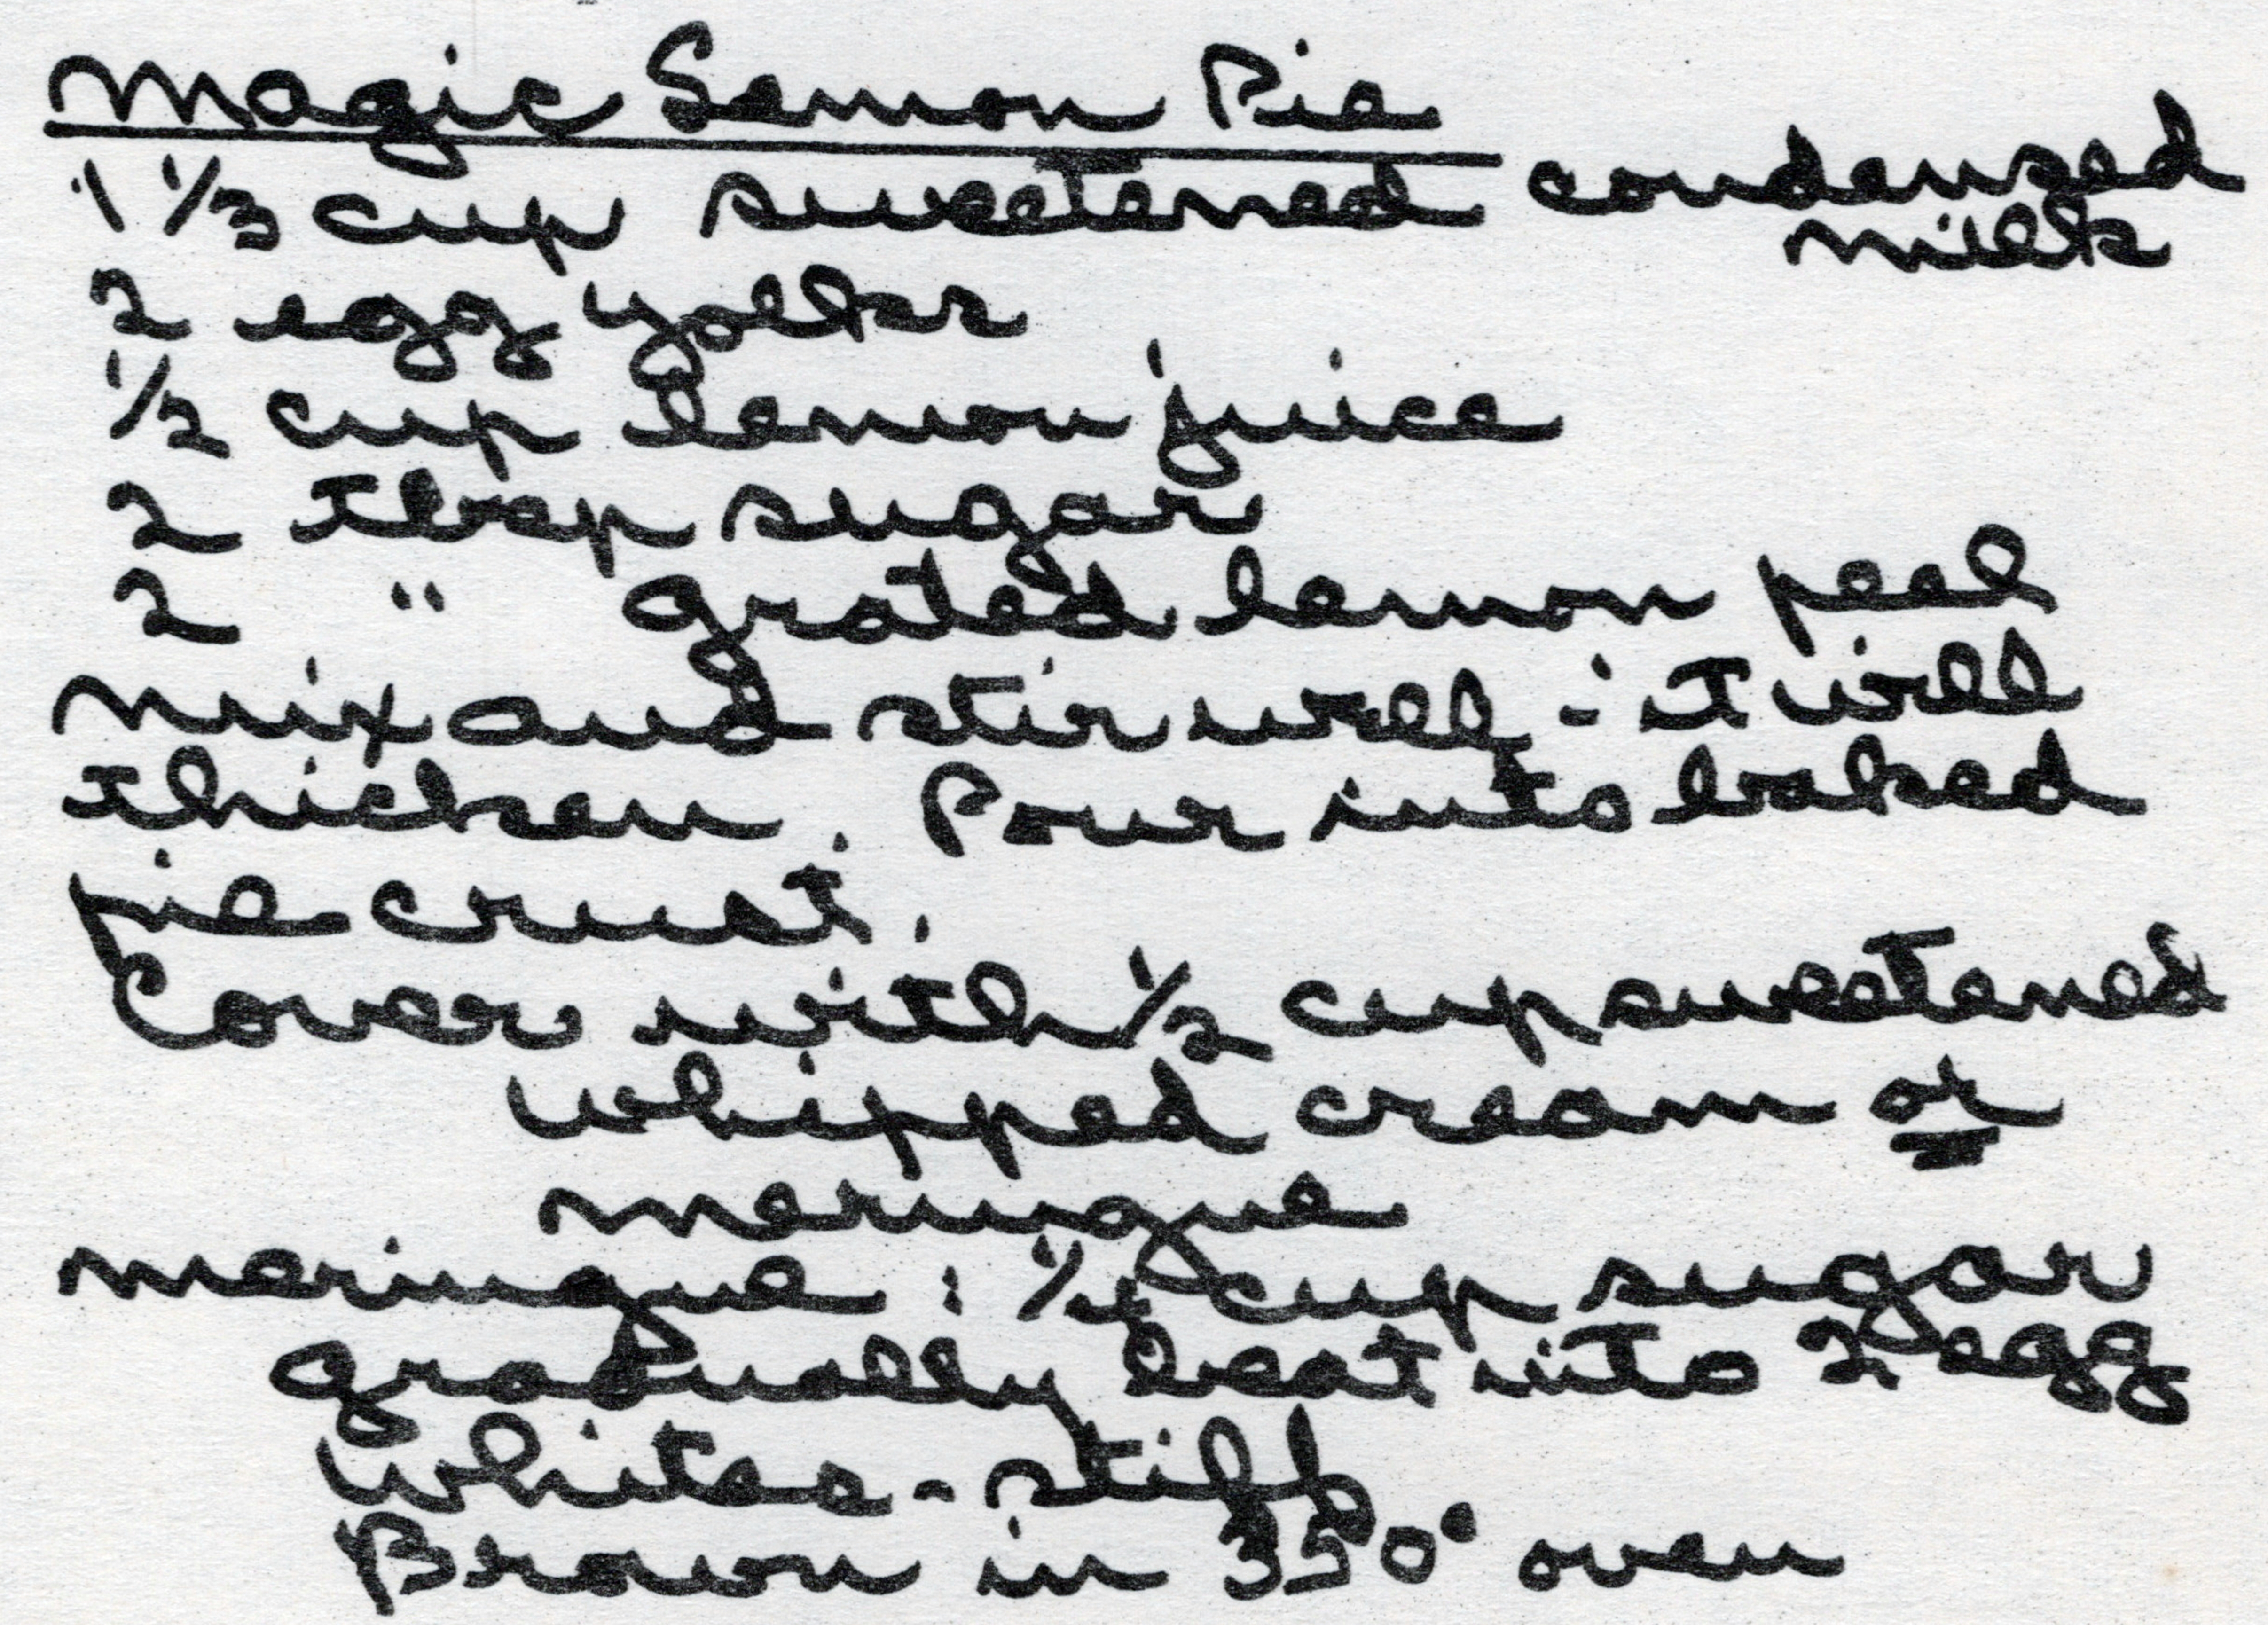 Magic Lemon Pie
1 1/3 cup sweetened condensed
milk
2 egg yolks
1/2 cup lemon juice
2 tbsp sugar
2 " grated lemon peel
Mix and stir well - it will
thicken. Pour into baked
pie crust.
Cover with 1/2 cup sweetened
whipped cream or
meringue
Meringue: 1/4 cup sugar
gradually beat into 2 egg
whites - stiff
Brown in 350° oven